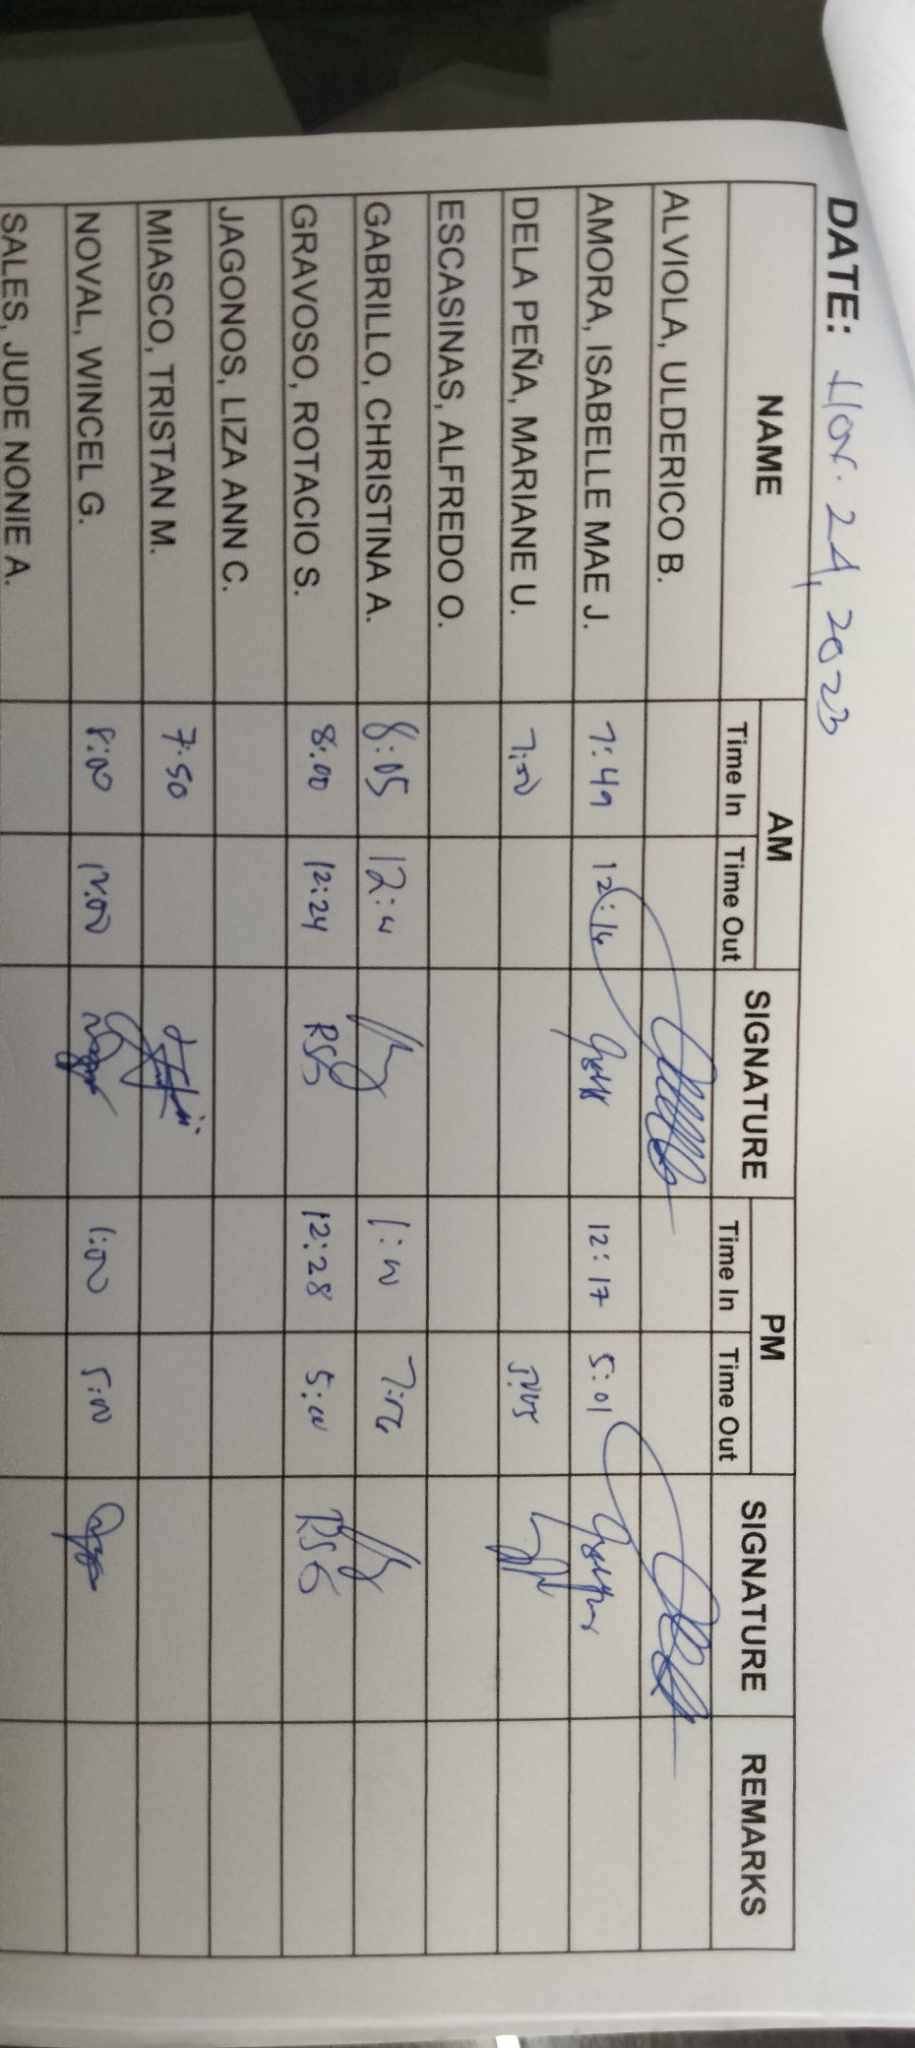 DATE: Nov. 24, 2023
NAME AM SIGNATURE PM SIGNATURE REMARKS
Time In Time Out Time In Time Out
ALVIOLA, ULDERICO B.
AMORA, ISABELLE MAE J. 7:49 12:16 12:17 5:01
DELA PEÑA, MARIANE U. 7:00 5:05
ESCASINAS, ALFREDO O.
GABRILLO, CHRISTINA A. 8:05 1:00
GRAVOSO, ROTACIO S. 8:00 12:24 RSG 12:28 5:00 RSG
JAGONOS, LIZA ANN C.
MIASCO, TRISTAN M. 7:50
NOVAL, WINCEL G. 8:00 12:00 1:00 5:00
SALES, JUDE NONIE A.